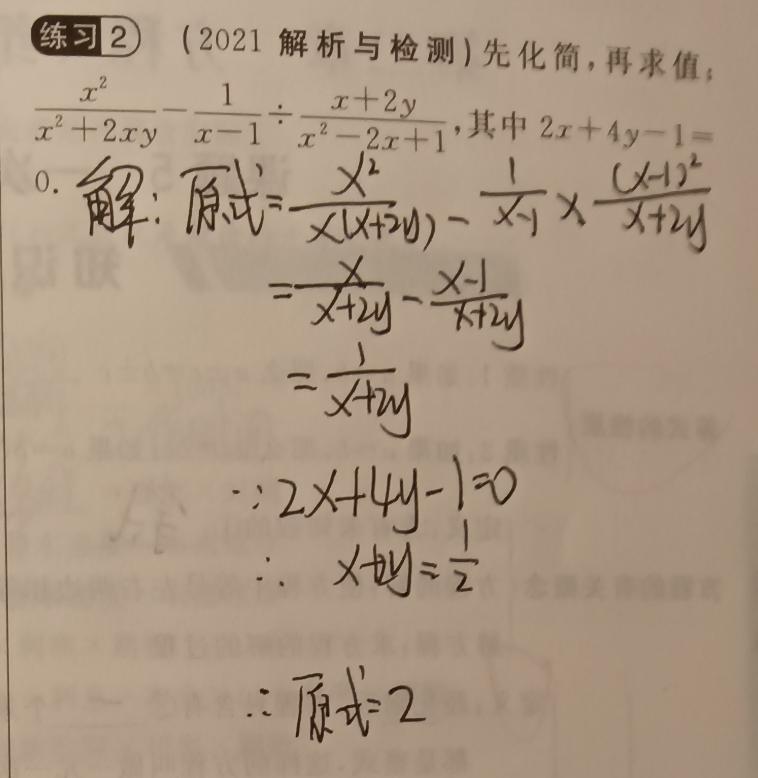 练习2 (2021 解析与检测)先化简,再求值:
x²/(x²+2xy) - 1/(x-1) ÷ (x+2y)/(x²-2x+1),其中 2x+4y-1=
0. 解:原式=x²/(x(x+2y)) - 1/(x-1) × (x-1)²/(x+2y)
=x/(x+2y) - (x-1)/(x+2y)
=1/(x+2y)
∵2x+4y-1=0
∴ x+2y=1/2
∴原式=2